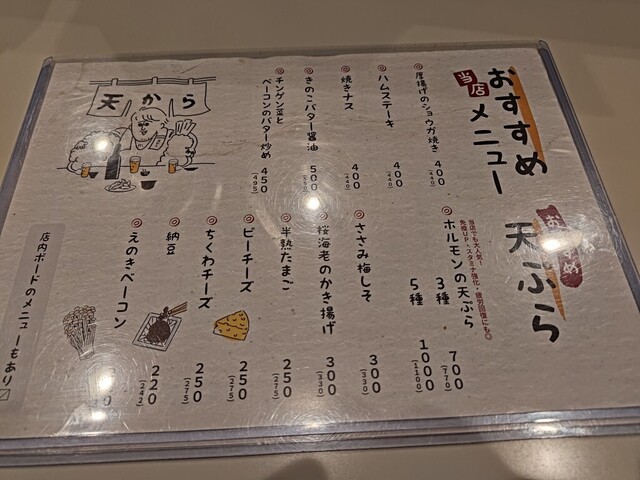 当店
おすすめ
メニュー
厚揚げのショウガ焼き 400 (440)
ハムステーキ 400 (440)
焼きナス 400 (440)
きのこバター醤油 500 (550)
チンゲン菜と
ベーコンのバター炒め 450 (495)
天から
おすすめ
天ぷら
当店でも大人気!
免疫UP・スタミナ強化・疲労回復にも◎
ホルモンの天ぷら
3種 700 (770)
5種 1000 (1100)
ささみ梅しそ 300 (330)
桜海老のかき揚げ 300 (330)
半熟たまご 250 (275)
ピーチーズ 250 (275)
ちくわチーズ 250 (275)
納豆 220 (242)
えのきベーコン
店内ボードのメニューもあり